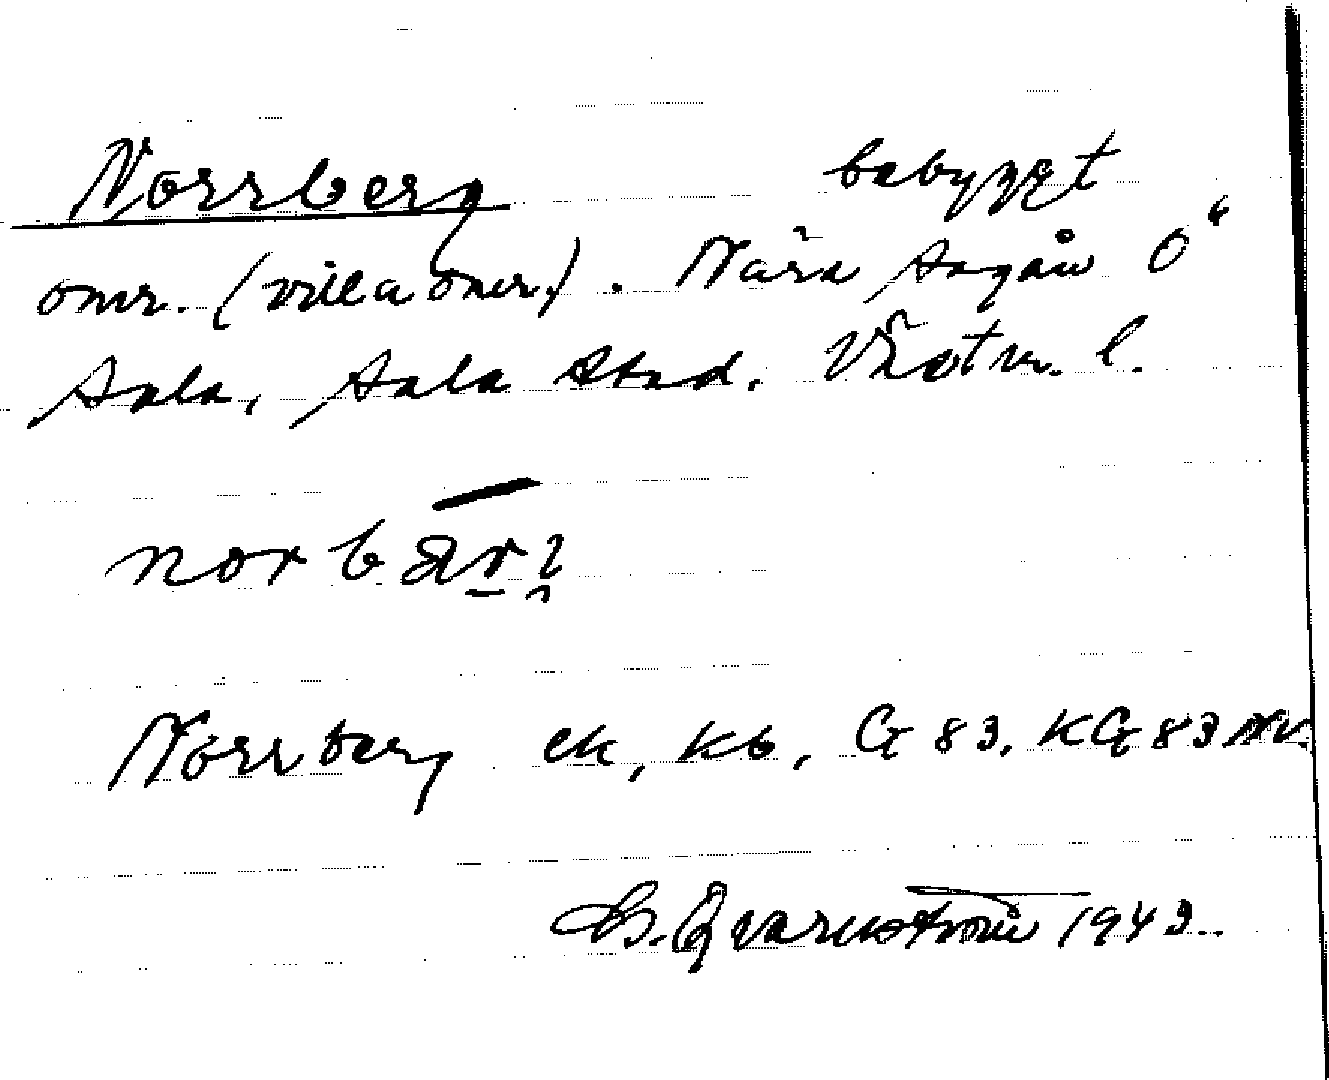 Norrberg bebyggt
omr. (villaomr.). Nära Sagån Ö
Sala, Sala stad. Västm. l.
norbär
Norrberg ek, kb, G 83, KG 83
G. Qvarnström 1943.